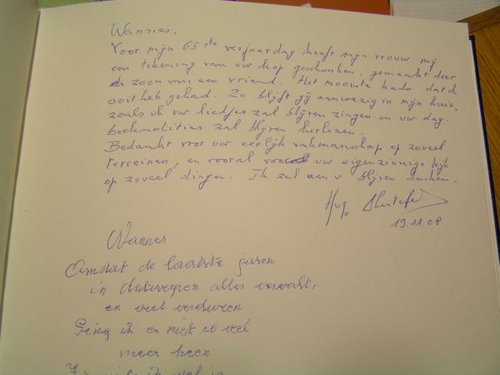 Wannes,
Voor mijn 65ste verjaardag heeft mijn vrouw mij
een tekening van uw kop geschonken, gemaakt door
de zoon van een vriend. Het mooiste kado dat ik
ooit heb gehad. Zo blijft gij aanwezig in mijn huis,
zoals ik uw liedjes zal blijven zingen en uw dag-
boeknotities zal blijven herlezen.
Bedankt voor uw eerlijk vakmanschap op zoveel
terreinen, en vooral voor uw eigenzinnige kijk
op zoveel dingen. Ik zal aan u blijven denken.
Hugo
19.11.08
Wannes
Omdat de laatste jaren
in Antwerpen alles
en veel verdween
Ging ik er niet zo veel
meer heen